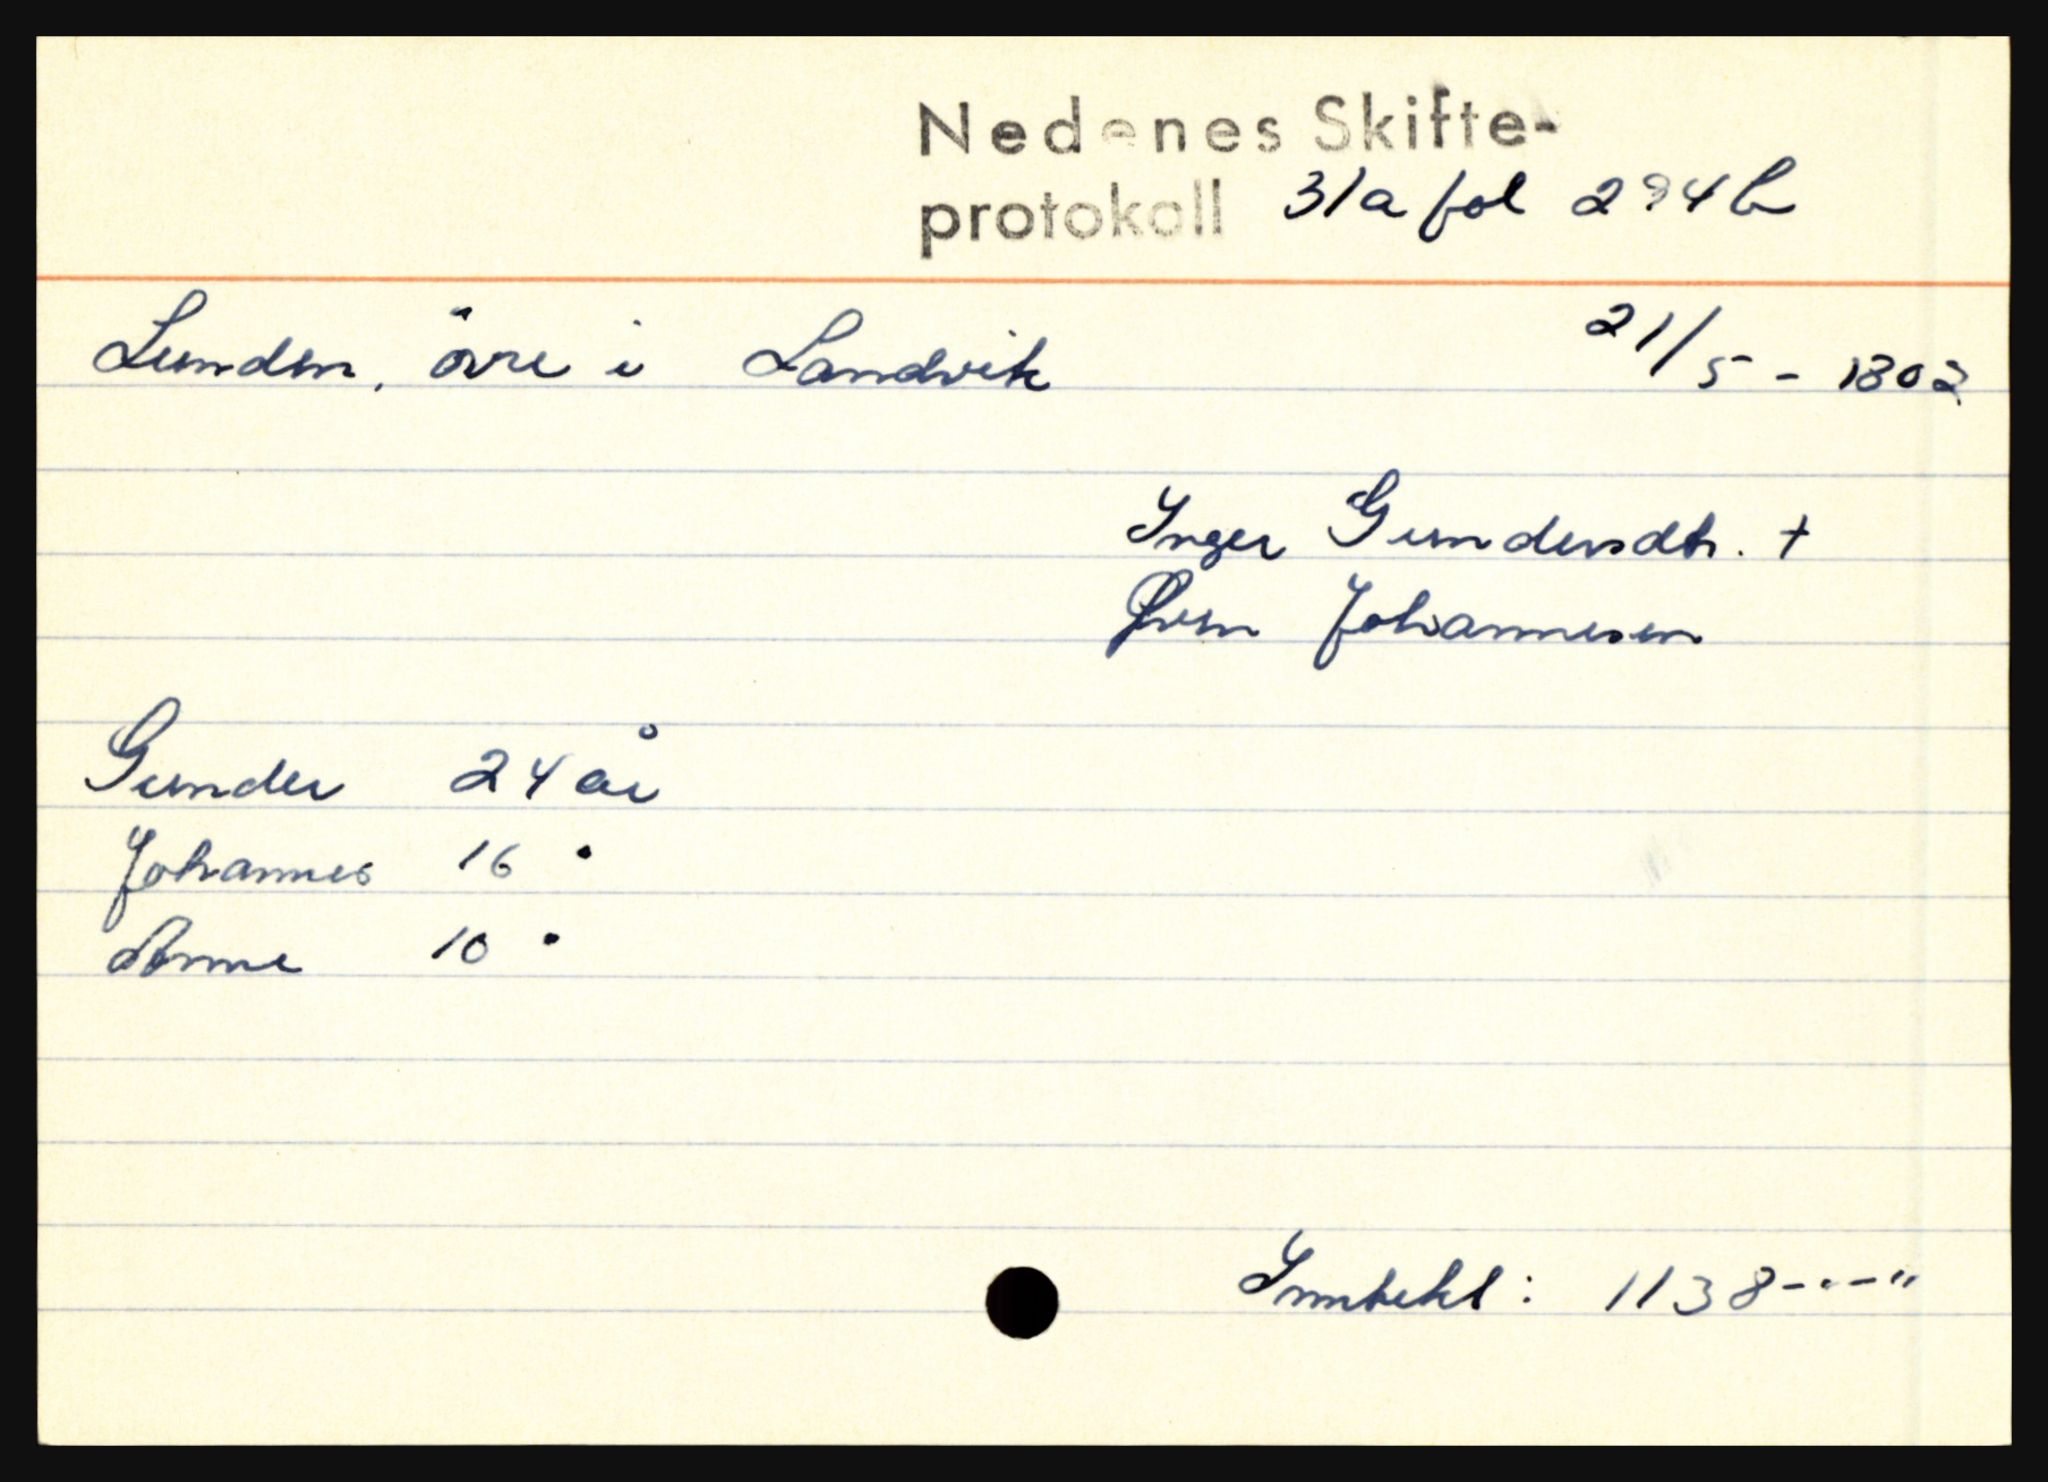 Nedenes Skifte-
protokoll 31a fol 294b
Lunden, övre i Landvik 21/5 - 1802
Inger Gundersdtr. +
Øven Johannesen
Gunder 24 år
Johannes 16 "
Anne 10 "
Inntekt: 1138-"-"